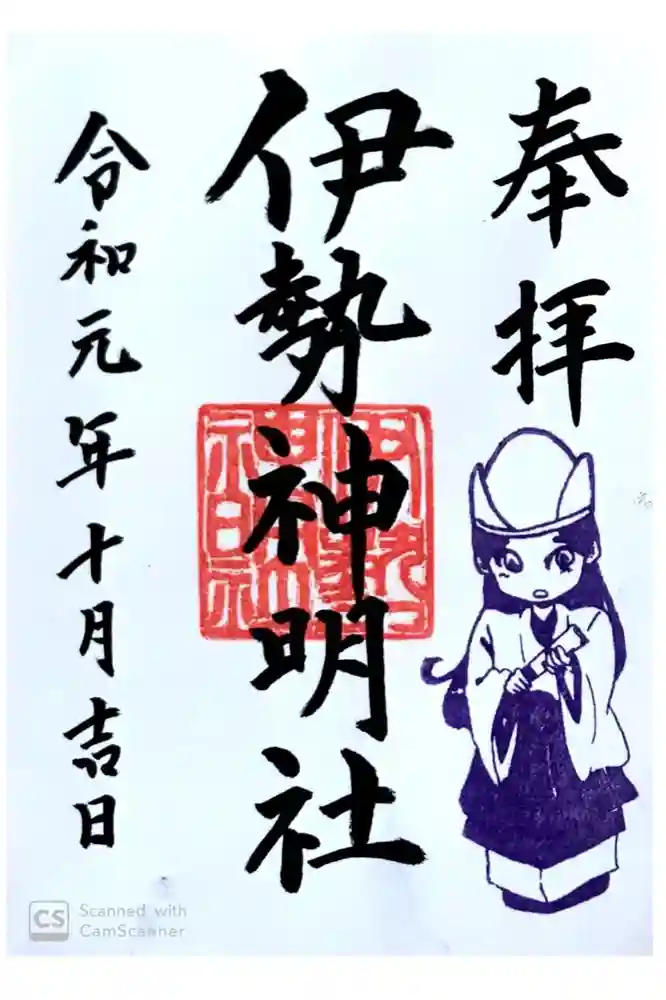 奉拝
伊勢神明社
令和元年十月吉日
伊勢
神明社
CS Scanned with
CamScanner